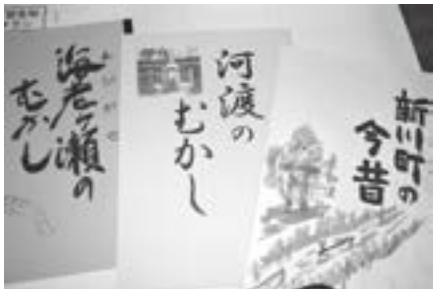 海老ヶ瀬の
むかし
河渡の
むかし
新川町の
今昔